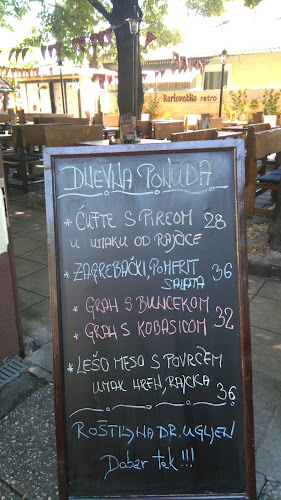 Karlovačko retro
DNEVNA PONUDA
* ĆUFTE S PIREOM 28
U UMAKU OD RAJČICE
* ZAGREBAČKI, POMFRIT 36
SALATA
* GRAH S BUNCEKOM
* GRAH S KOBASICOM 32
* LEŠO MESO S POVRĆEM
UMAK HREN, RAJČICA 36
ROŠTILJ NA DR. UGLJEN!
Dobar tek!!!